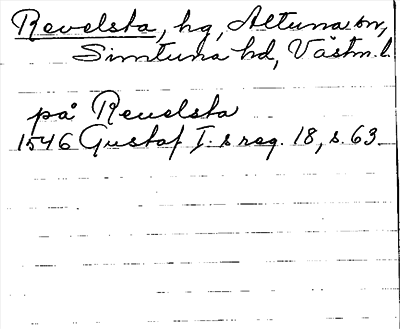 Revelsta, hg, Altuna sn,
Simtuna hd, Västm. l.
på Reuelsta
1546 Gustaf I: s reg. 18, s. 63.